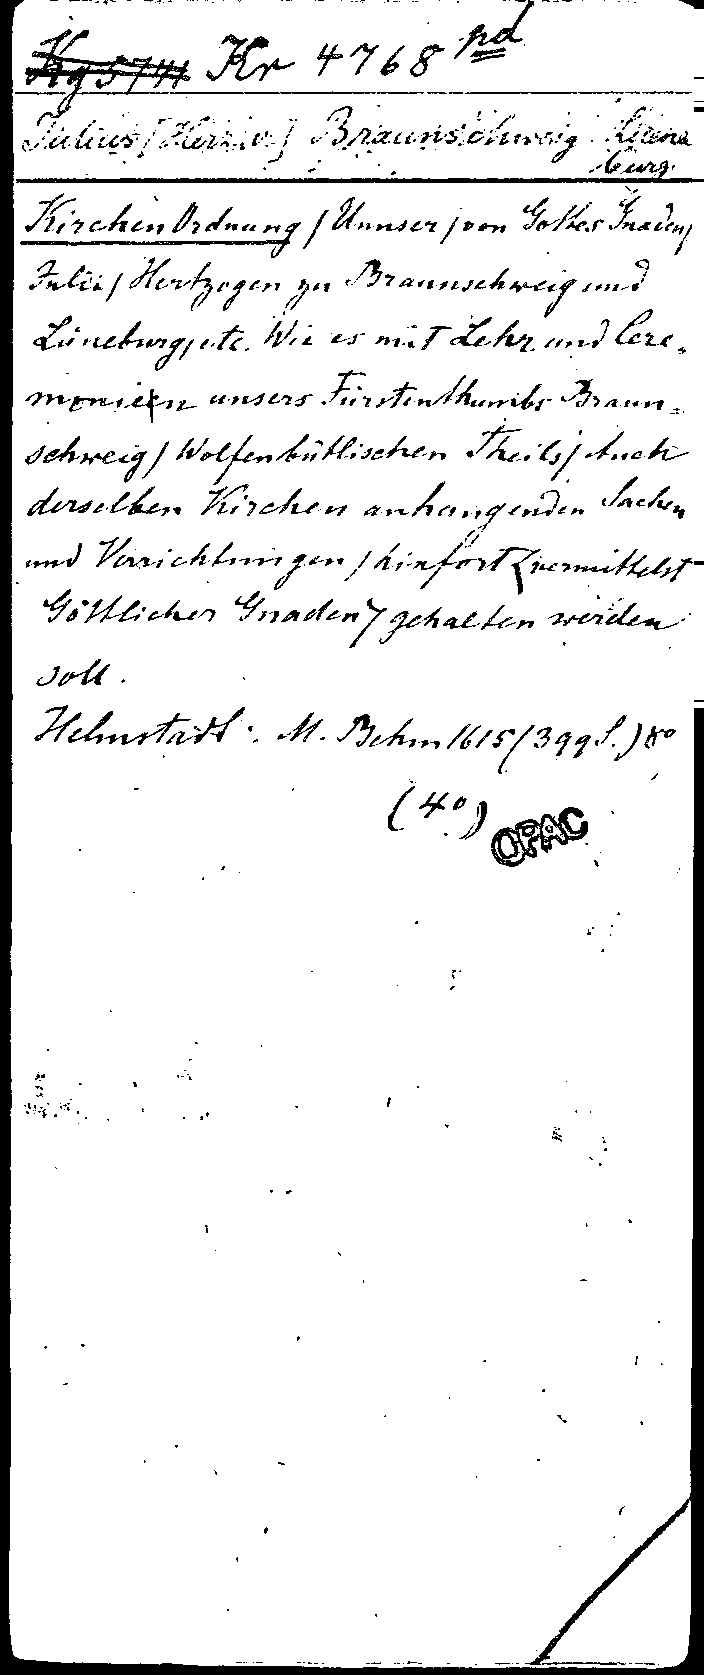 Kg 5741 Kr 4768 pd
Julius [Herz. v.] Braunschweig Lüne
burg.
KirchenOrdnung / Unnser / von Gottes Gnaden /
Julii / Hertzogen zu Braunschweig und
Lüneburg, etc. Wie es mit Lehr und Cere-
monien unsers Fürstenthumbs Braun-
schweig / Wolfenbütlischen Theils / Auch
derselben Kirchen anhangenden Sachen
und Verrichtungen / hinfort (vermittelst
Göttlicher Gnaden) gehalten werden
soll.
Helmstadt: M. Behm 1615 (399 S.) 8°
(4°)
OPAC